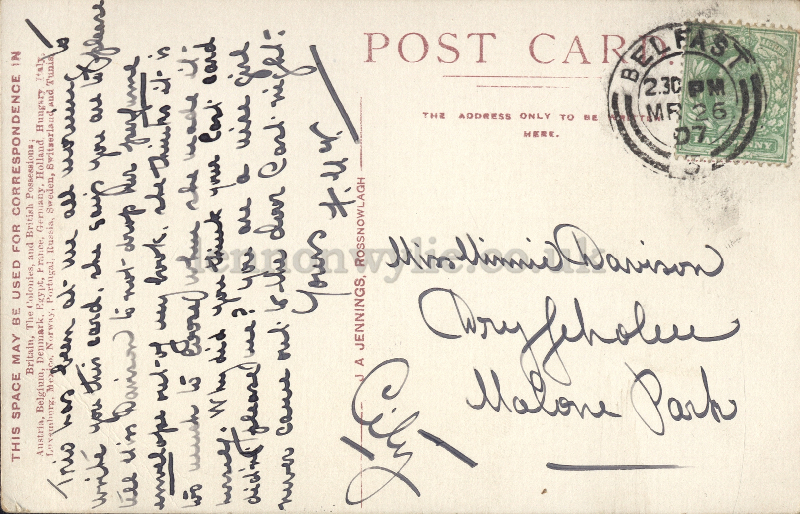 THIS SPACE MAY BE USED FOR CORRESPONDENCE IN
Britain, The Colonies, and British Possessions;
Austria, Belgium, Denmark, Egypt, France, Germany, Holland, Hungary, Italy,
Luxemburg, Mexico, Norway, Portugal, Russia, Sweden, Switzerland, and Tunis
This has been at me all morning to
write you this card, she says you are to please
tell Miss Davison to not drop her perfume
envelope out of my book, she thinks it is
too much to when she made it
herself. Why did you think your last card
didn't please me? you are a wise girl
never came out to the door last night.
Yours F.
J A JENNINGS, ROSSNOWLAGH
POST CARD
THE ADDRESS ONLY TO BE WRITTEN
HERE.
BELFAST
2.30 PM
MR 26
07
Miss Minnie Davison
Malone Park
City
lennonwylie.co.uk